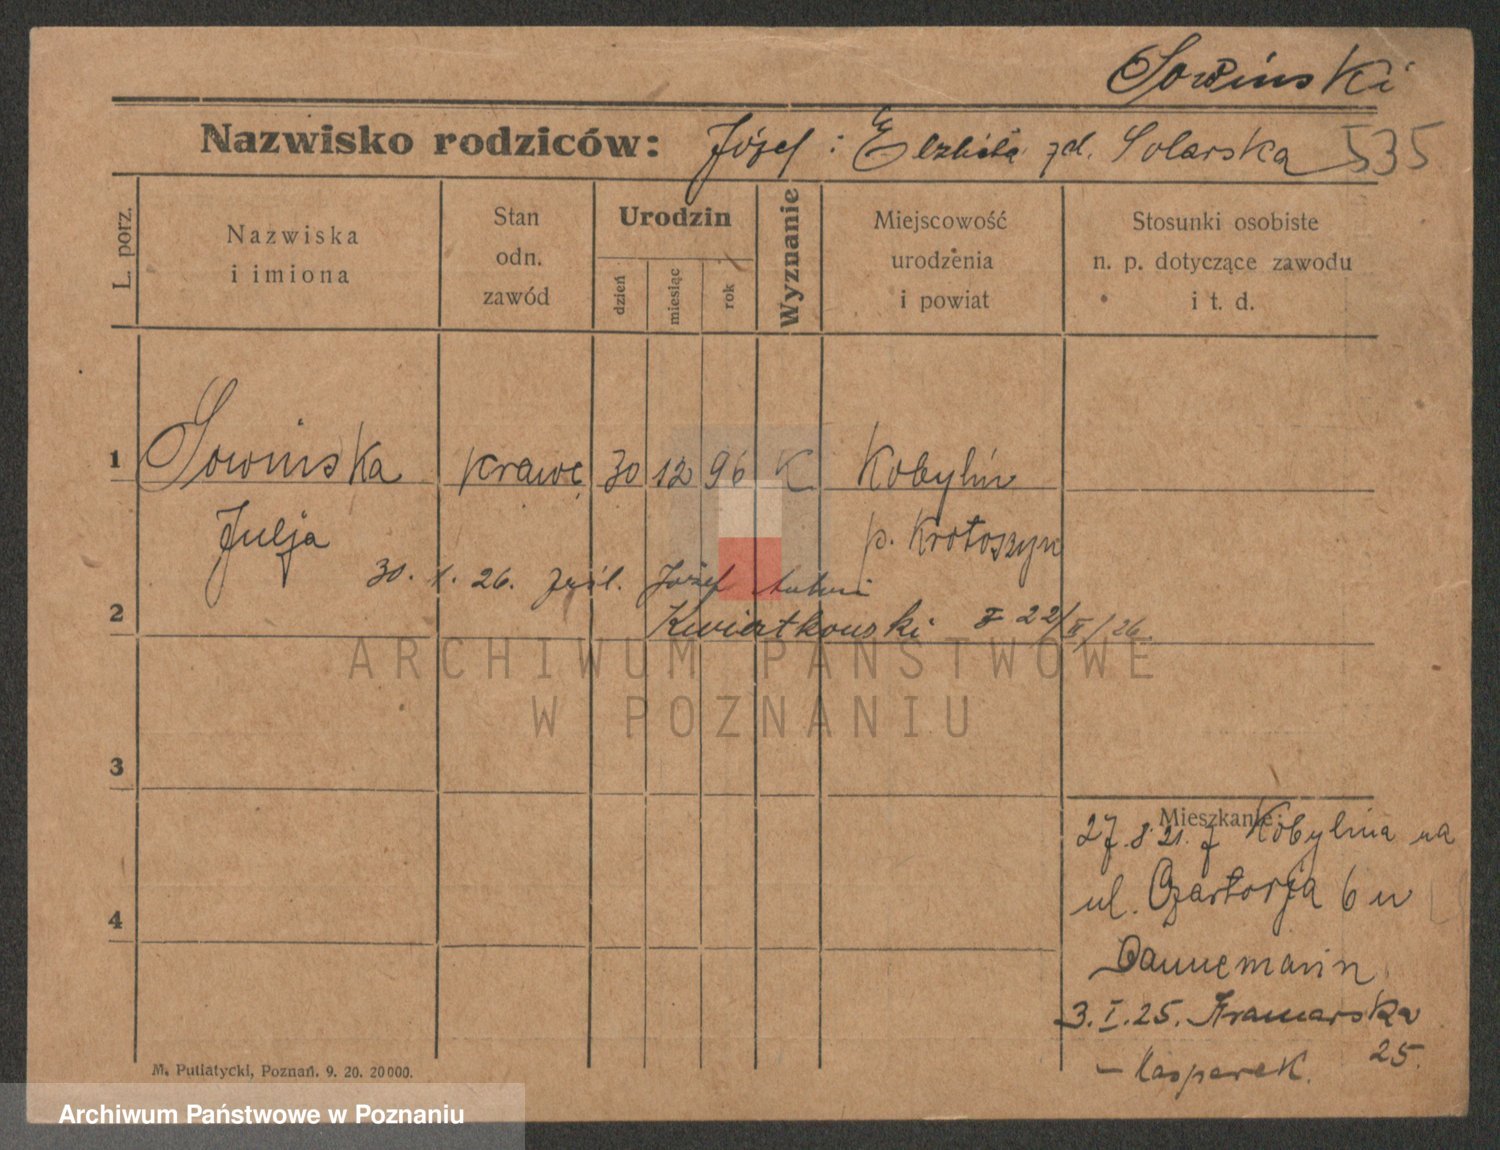 Sowiński
Nazwisko rodziców: Józef i Elżbieta zd. Solarska 535
L. porz.
Nazwiska
i imiona
Stan
odn.
zawód
Urodzin
dzień
miesiąc
rok
Wyznanie
Miejscowość
urodzenia
i powiat
Stosunki osobiste
n. p. dotyczące zawodu
i t. d.
1 Sowińska krawc. 30 12 96 K Kobylin
Julja p. Krotoszyn
30. 1. 26. Józef
2 Kwiatkowski 22/ II / 26.
ARCHIWUM PAŃSTWOWE
W POZNANIU
3
Mieszkanie:
27.8.21. z Kobylina na
ul. Czartorja 6 u
4
Dannemann
3. I. 25. Kramarska
25.
– Kasparek.
M. Putiatycki, Poznań. 9. 20. 20000.
Archiwum Państwowe w Poznaniu